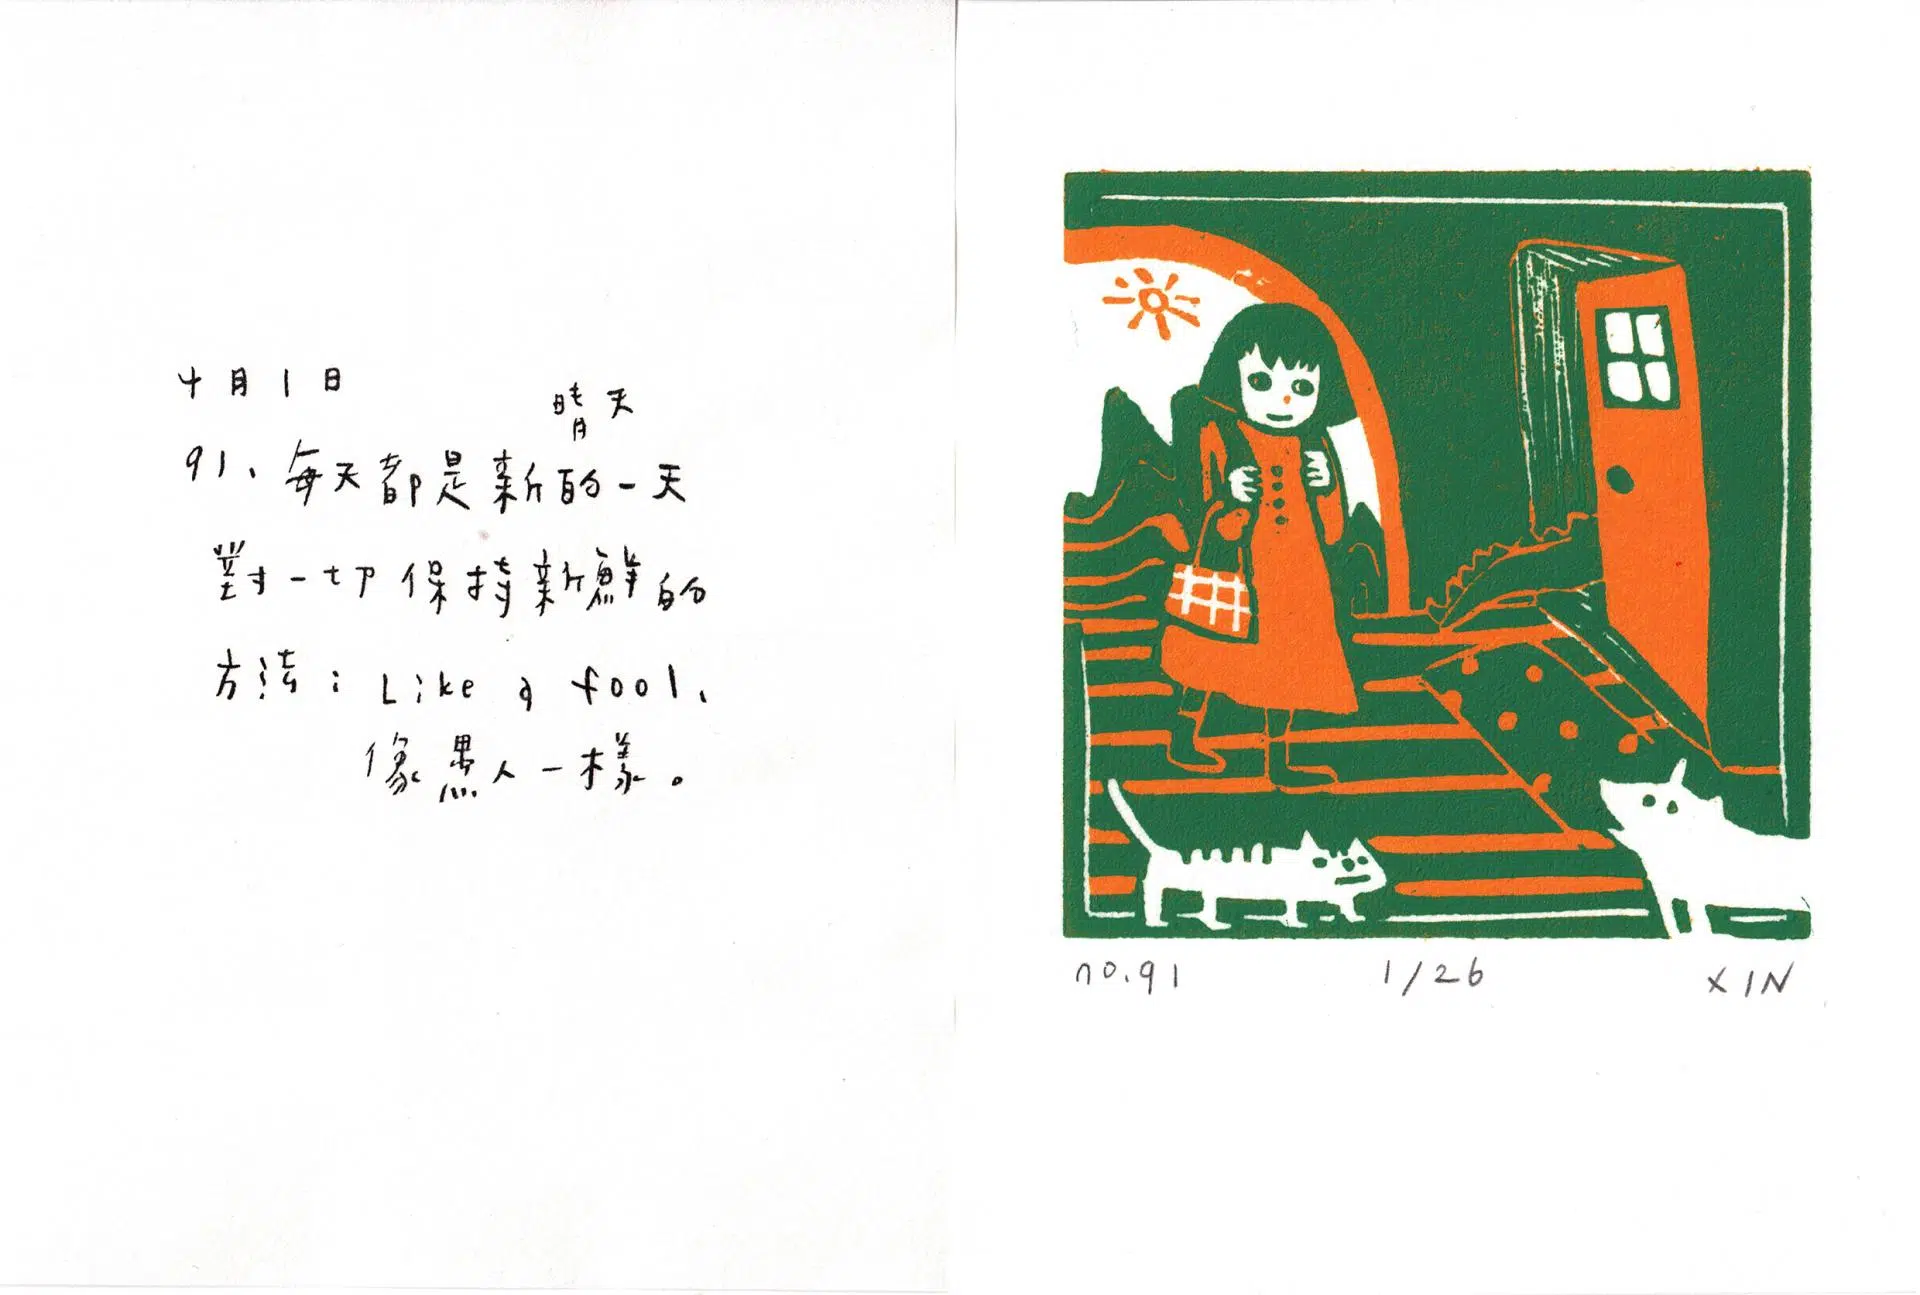 4月1日
晴天
91、每天都是新的一天
對一切保持新鮮的
方法：Like a fool、
像愚人一樣。
no.91 1/26 XIN